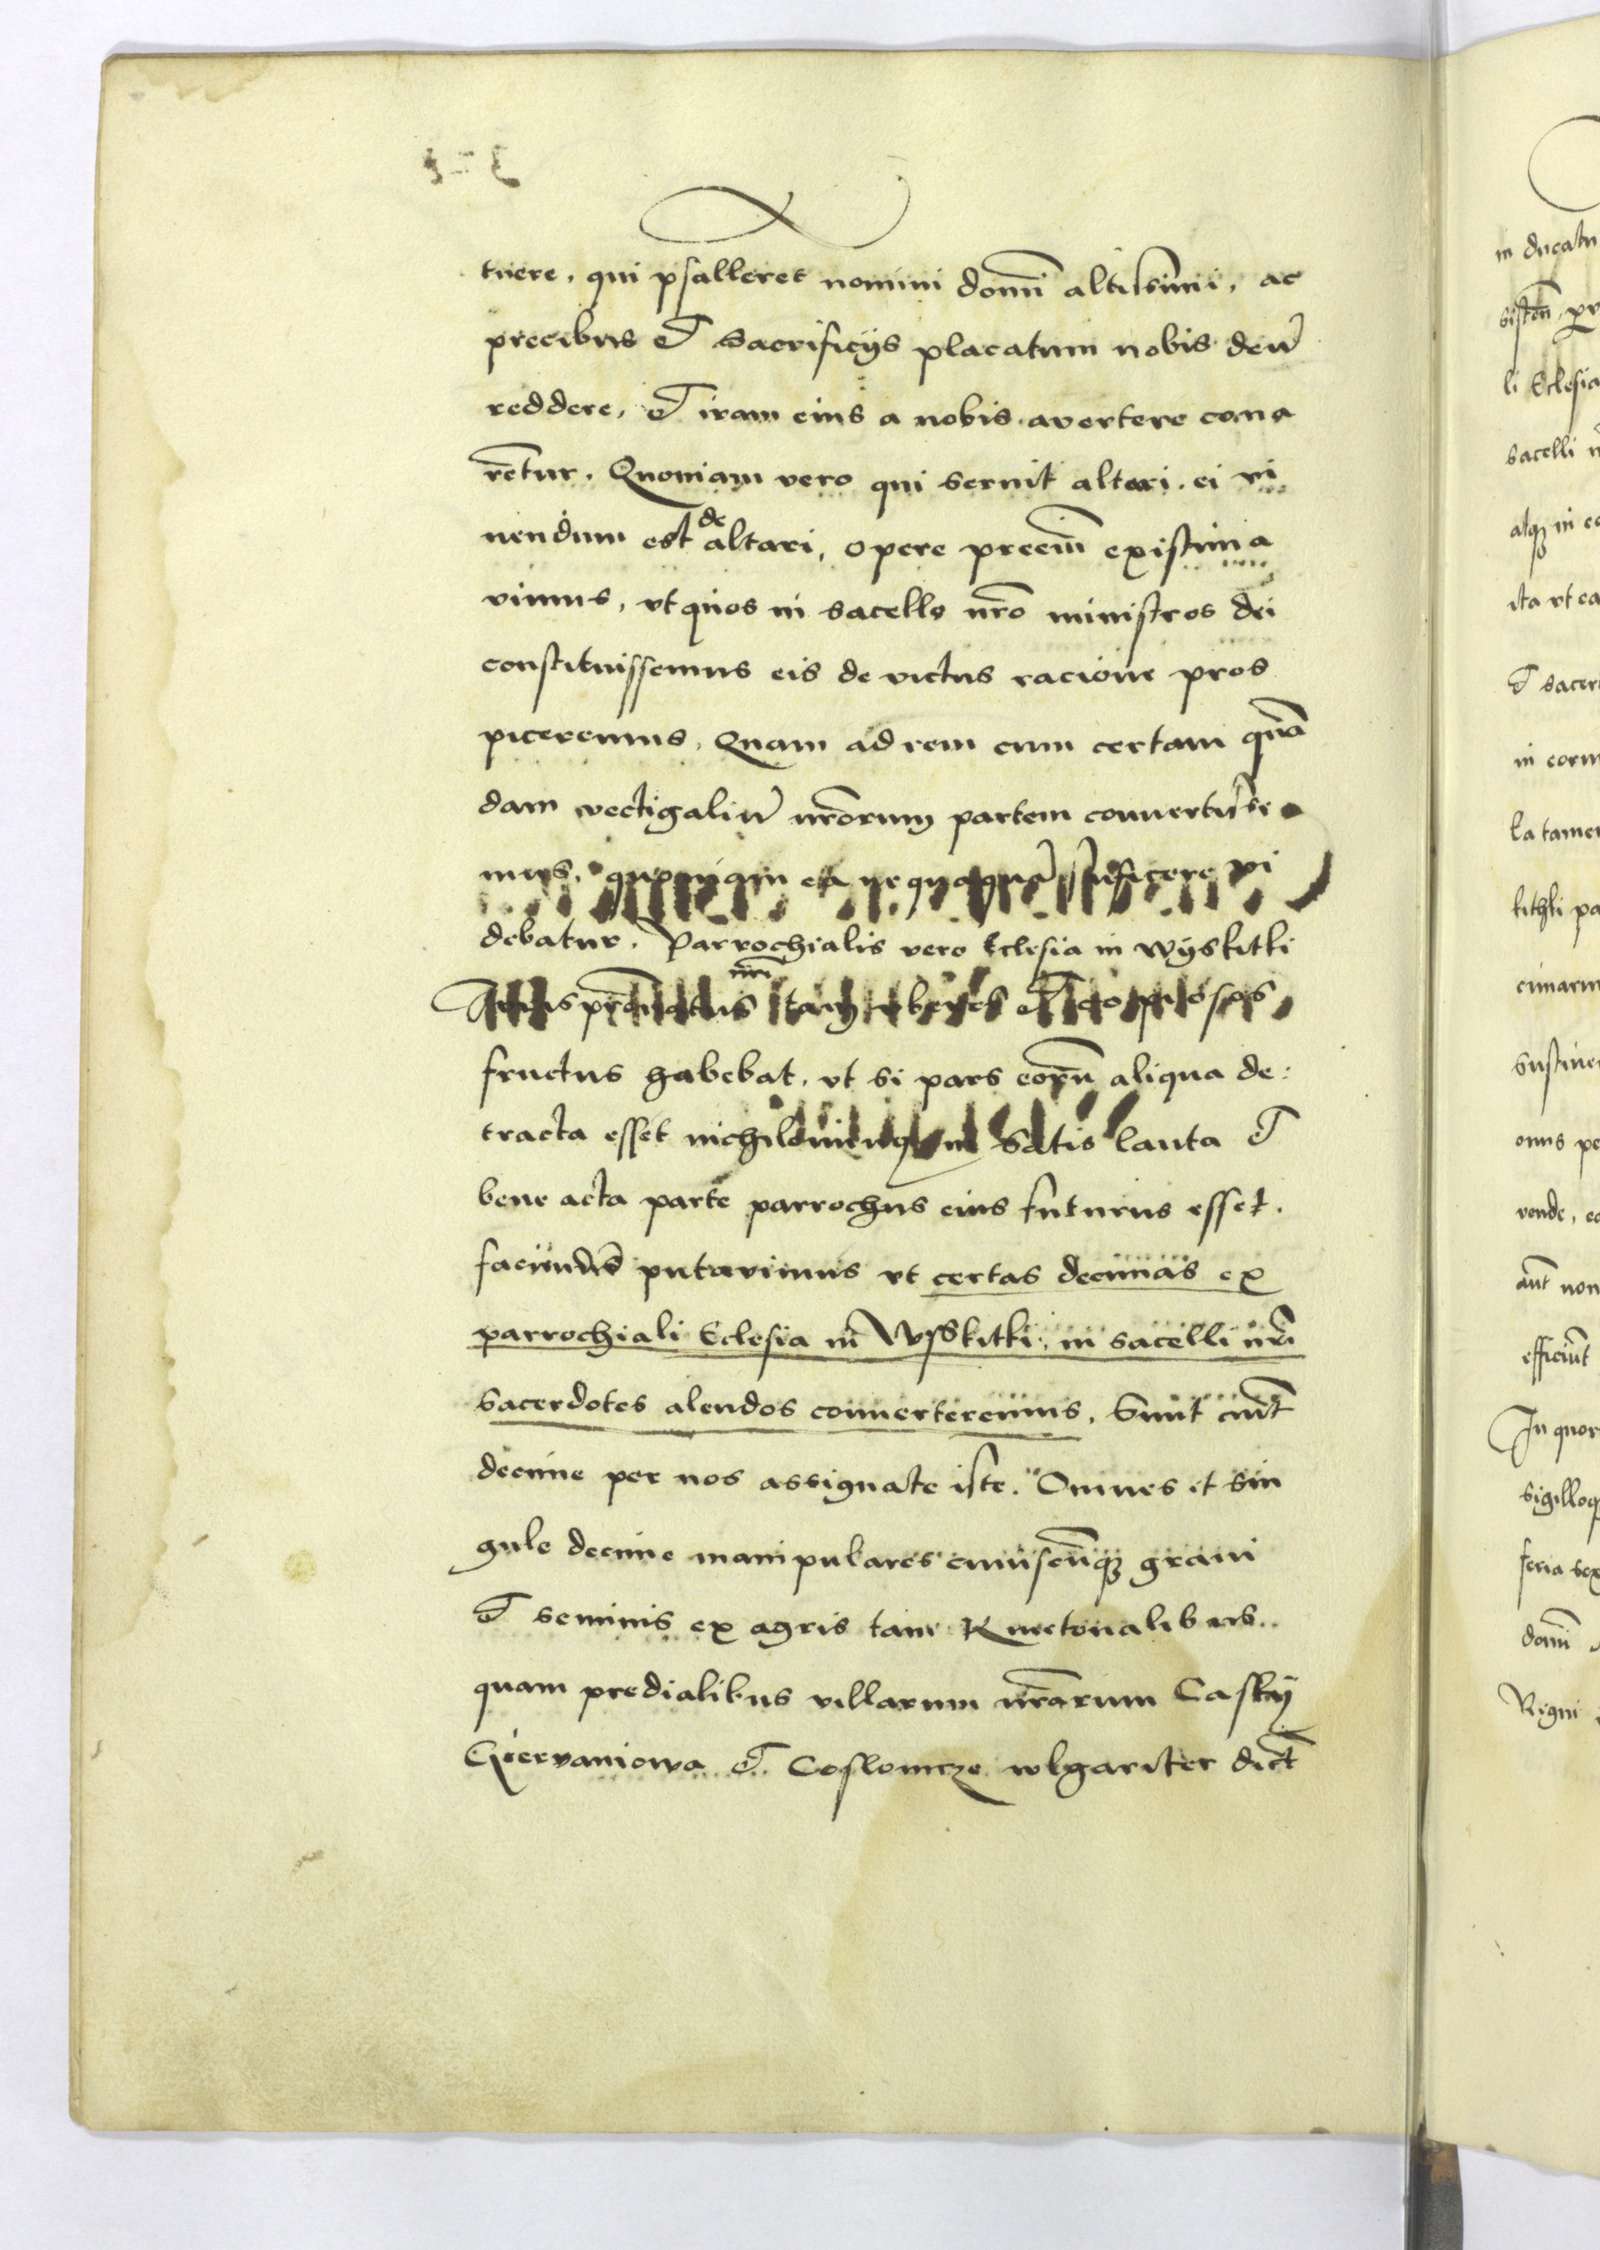 tuere, qui psalleret nomini domī altissimi, ac
precibus et sacrificijs placatum nobis deū
reddere, et iram eius a nobis avertere cona
rētur. Quoniam vero qui servit altari, ei vi
vendum est de altari, opere preciū existima
vimus, vt quos in sacello nrō ministros dei
constituissemus eis de victus racione pros
piceremus, Quam ad rem cum certam quā
dam vectigaliū nrōrum partem convertisse
mus, quoniam ea nequaquā sufficere vi
debatur. Parrochialis vero Eclesia in Wyskitki
Iuris prōnatus nrī tam vberes et copiosos
fructus habebat, vt si pars eorū aliqua de:
tracta esset nichilominus in satis lauta et
bene acta parte parrochus eius futurus esset.
faciundū putavimus vt certas decimas ex
parrochiali Eclesia in Wysskitki, in sacelli nrī
sacerdotes alendos converteremus, Sunt aūt
decime per nos assignate iste. Omnes et sin
gule decime manipulares cuiuscūqz grani
et seminis ex agris tam Kmetonalibus
quam predialibus villarum nrārum Casky
Gervaniowa et Coslomcze wlgariter dict
in ducatu
li Eclesia
sacelli
atqz in
ita vt ea
et sacer
in
la tamen
onus
vende,
aūt non
efficiūt
In quor
sigilloq
feria sex
domī
Regni